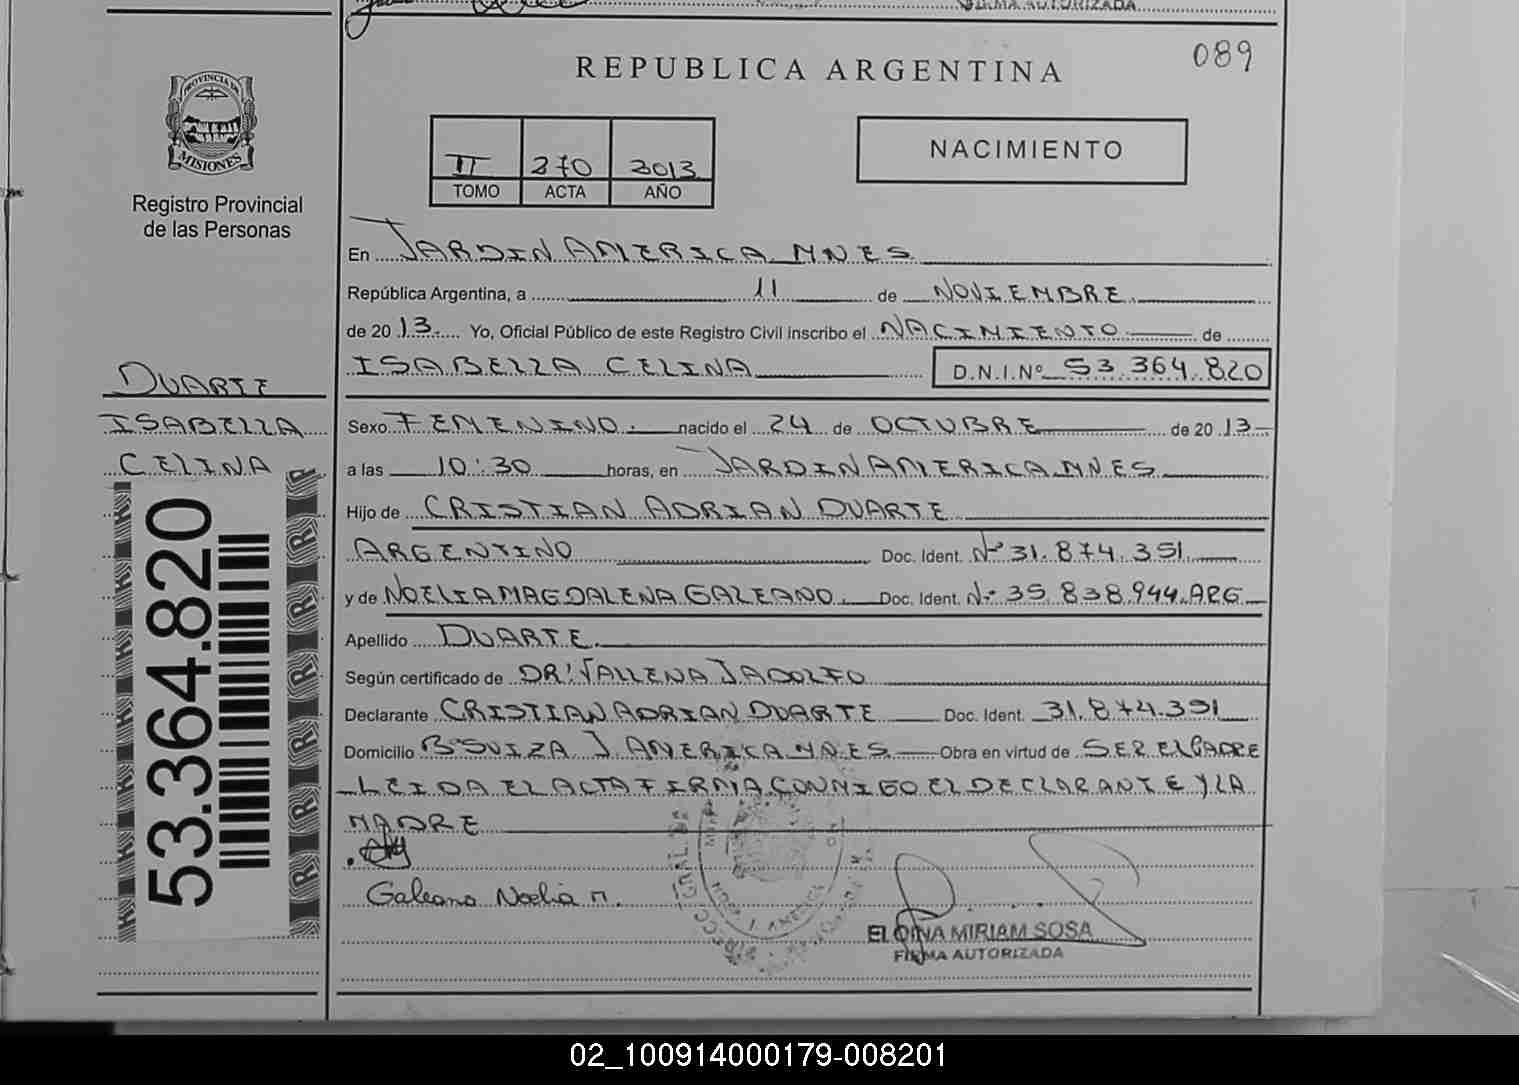 FIRMA AUTORIZADA
089
REPUBLICA ARGENTINA
PROVINCIA DE
MISIONES
Registro Provincial
de las Personas
II 270 2013
TOMO ACTA AÑO
NACIMIENTO
En JARDIN AMERICA MNES
República Argentina, a 11 de NOVIEMBRE
de 2013 Yo, Oficial Público de este Registro Civil inscribo el NACIMIENTO de
ISABELLA CELINA D.N.I.Nº 53.364.820
DUARTE
ISABELLA
CELINA
53.364.820
Sexo FEMENINO. nacido el 24 de OCTUBRE de 2013
a las 10:30 horas, en JARDIN AMERICA MNES
Hijo de CRISTIAN ADRIAN DUARTE
ARGENTINO Doc. Ident. Nº 31.874.351
y de NOELIA MAGDALENA GALEANO. Doc. Ident. Nº 35.838.944 ARG
Apellido DUARTE.
Según certificado de DR: VALLENA J ADOLFO
Declarante CRISTIAN ADRIAN DUARTE Doc. Ident. 31.874.351
Domicilio Bº SUIZA J. AMERICA MNES Obra en virtud de SER EL PADRE
LEIDA EL ACTA FIRMA CONMIGO EL DECLARANTE Y LA
MADRE
Galeano Noelia M.
ELOINA MIRIAM SOSA
FIRMA AUTORIZADA
02_100914000179-008201